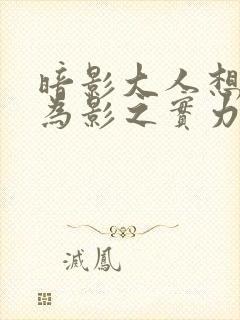 暗影大人想
為影之實力
滅鳳